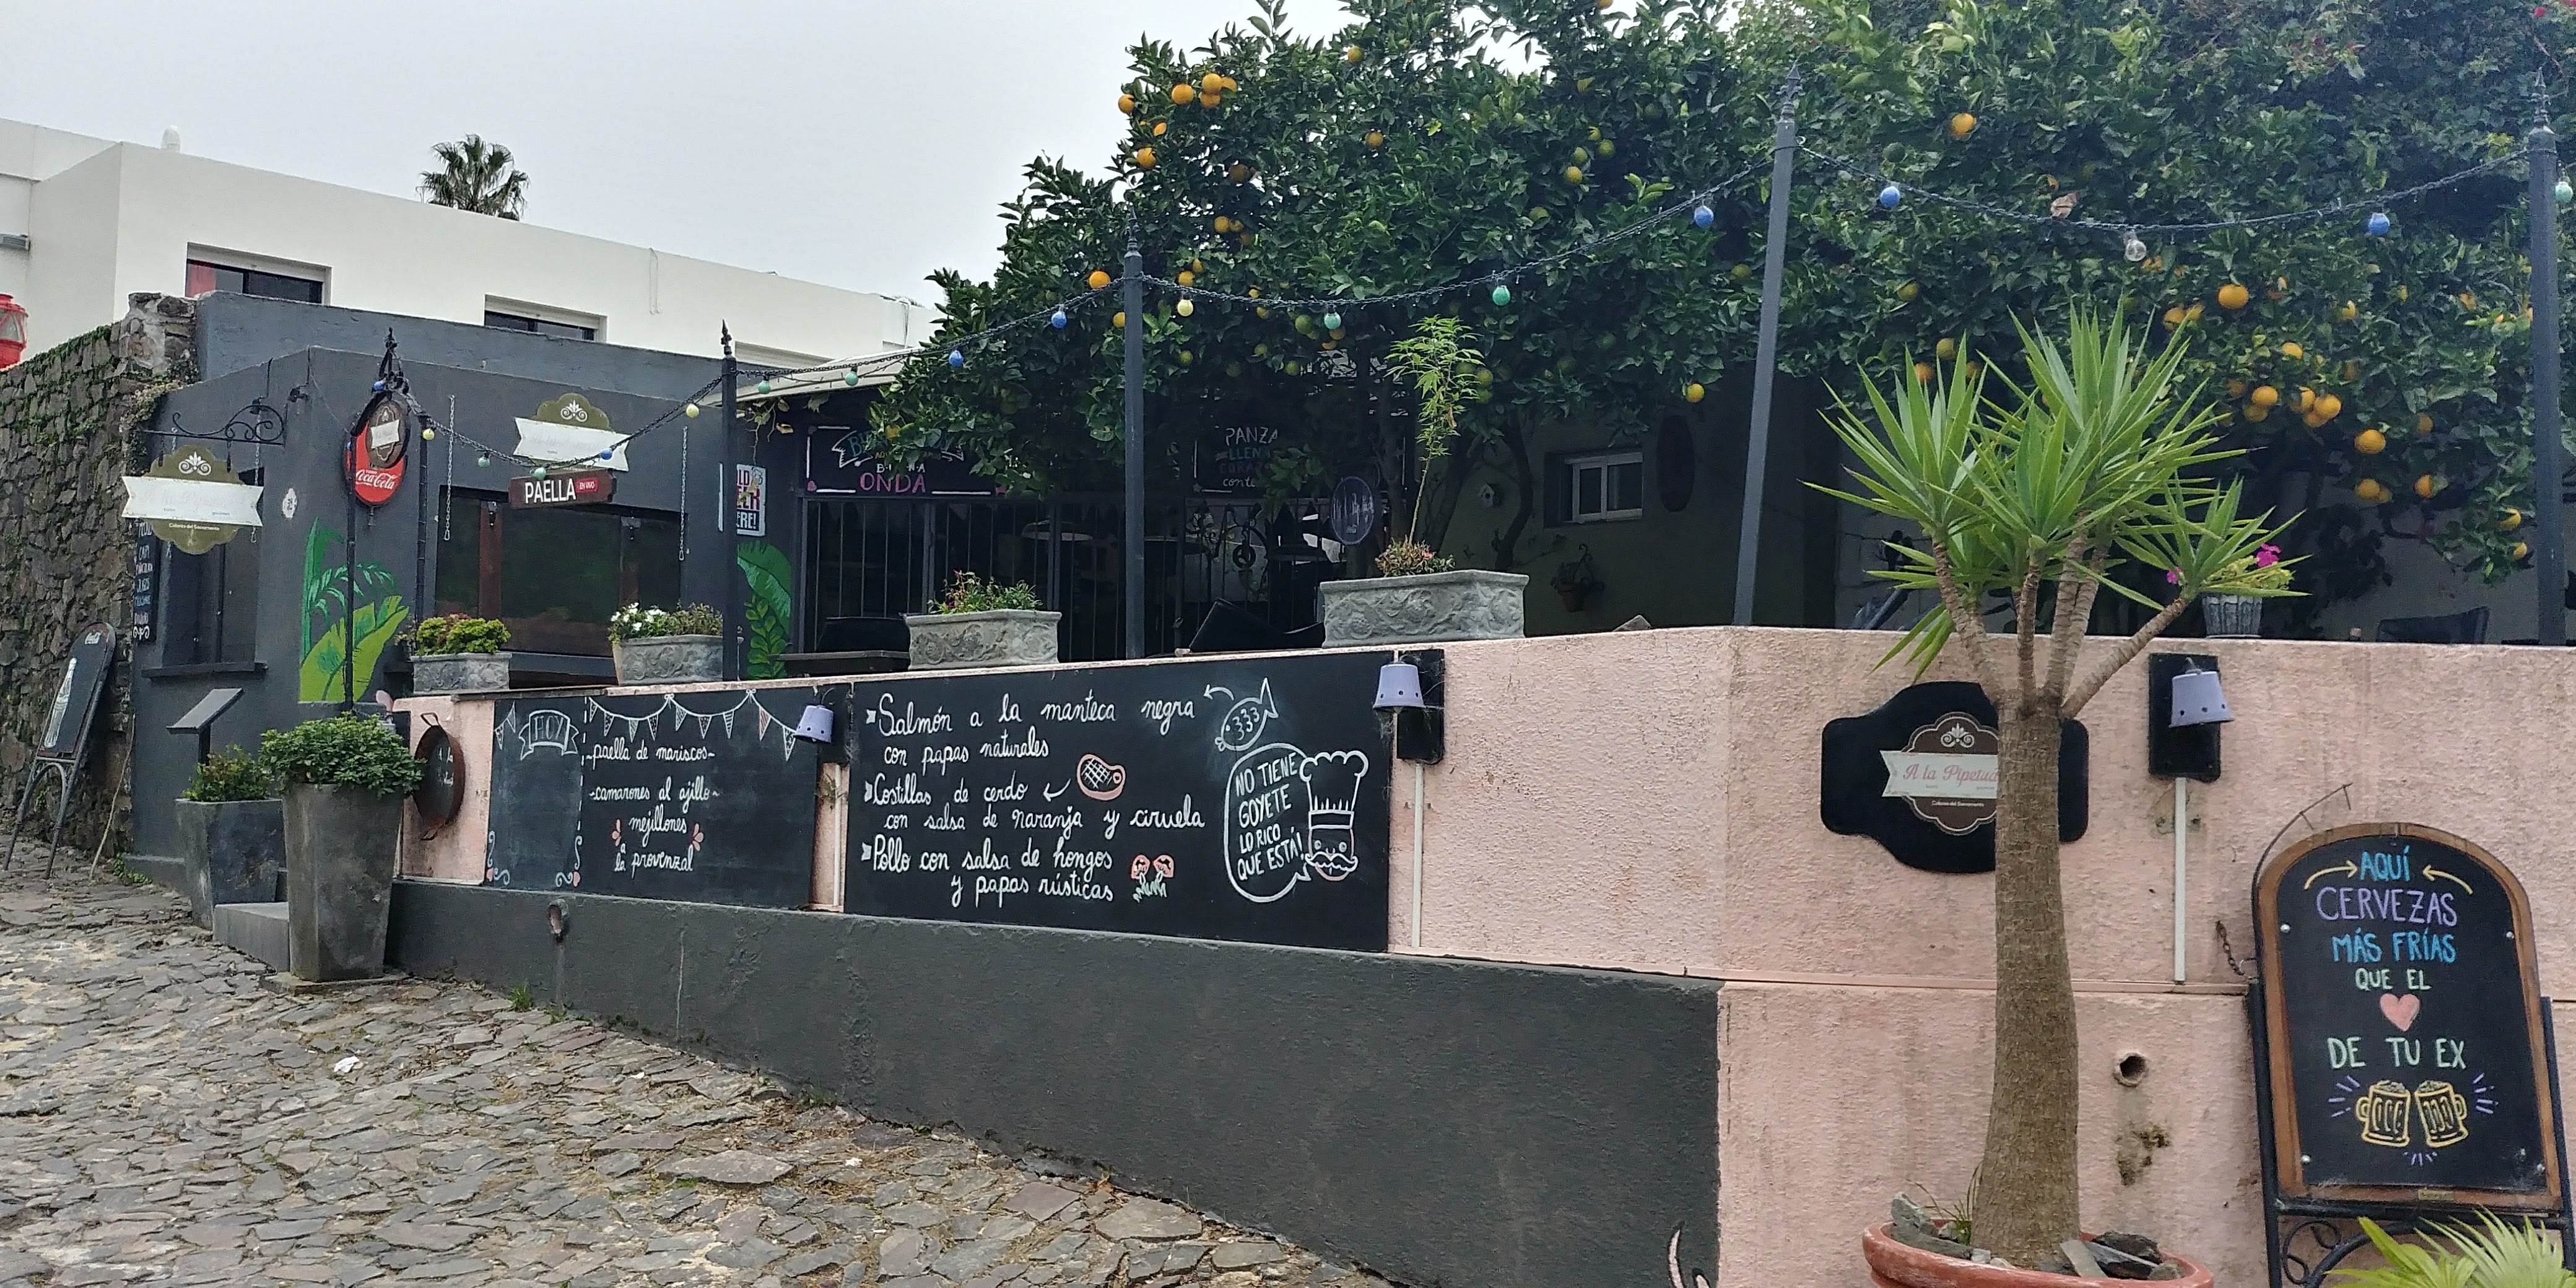 Colonia del Sacramento
Coca-Cola
PAELLA
EN VIVO
BUENA
ONDA
PANZA
LLENA
Coca-Cola
HOY
-paella de mariscos-
-camarones al ajillo-
mejillones
a
la provenzal
Salmón a la manteca negra
con papas naturales
Costillas de cerdo
con salsa de naranja y ciruela
Pollo con salsa de hongos
y papas rústicas
NO TIENE
GOYETE
LO RICO
QUE ESTÁ!
A la Pipetuá
Colonia del Sacramento
AQUÍ
CERVEZAS
MÁS FRÍAS
QUE EL
DE TU EX